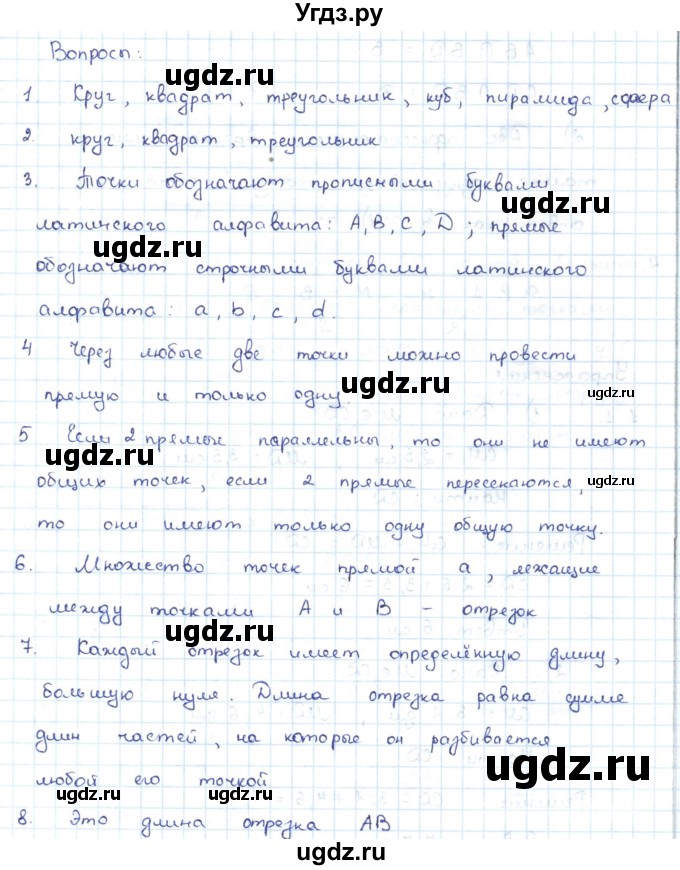 Угдз.ру
Вопросы:
ugdz.ru
1. Круг, квадрат, треугольник, куб, пирамида, сфера
ugdz.ru
2. круг, квадрат, треугольник
3. Точки обозначают прописными буквами
ugdz.ru
латинского алфавита: A, B, C, D; прямые
ugdz.ru
ugdz.ru
обозначают строчными буквами латинского
алфавита: a, b, c, d.
4 Через любые две точки можно провести
ugdz.ru
прямую и только одну
ugdz.ru
5 Если 2 прямые параллельны, то они не имеют
ugdz.ru
общих точек, если 2 прямые пересекаются,
ugdz.ru
то они имеют только одну общую точку.
6. Множество точек прямой a, лежащие
ugdz.ru
между точками A и B – отрезок
ugdz.ru
7. Каждый отрезок имеет определённую длину,
ugdz.ru
большую нуля. Длина отрезка равна сумме
длин частей, на которые он разбивается
ugdz.ru
ugdz.ru
любой его точкой
ugdz.ru
ugdz.ru
8. Это длина отрезка AB
ugdz.ru